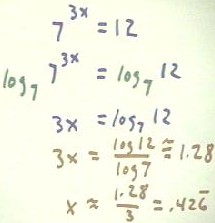 7^{3x} = 12
log_7 7^{3x} = log_7 12
3x = log_7 12
3x = \frac{log 12}{log 7} ≅ 1.28
x ≈ \frac{1.28}{3} = .42\overline{6}